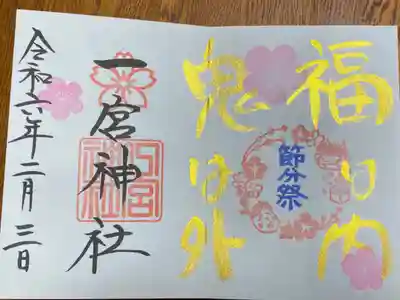 福は内
節分祭
鬼は外
一宮神社
令和六年二月三日